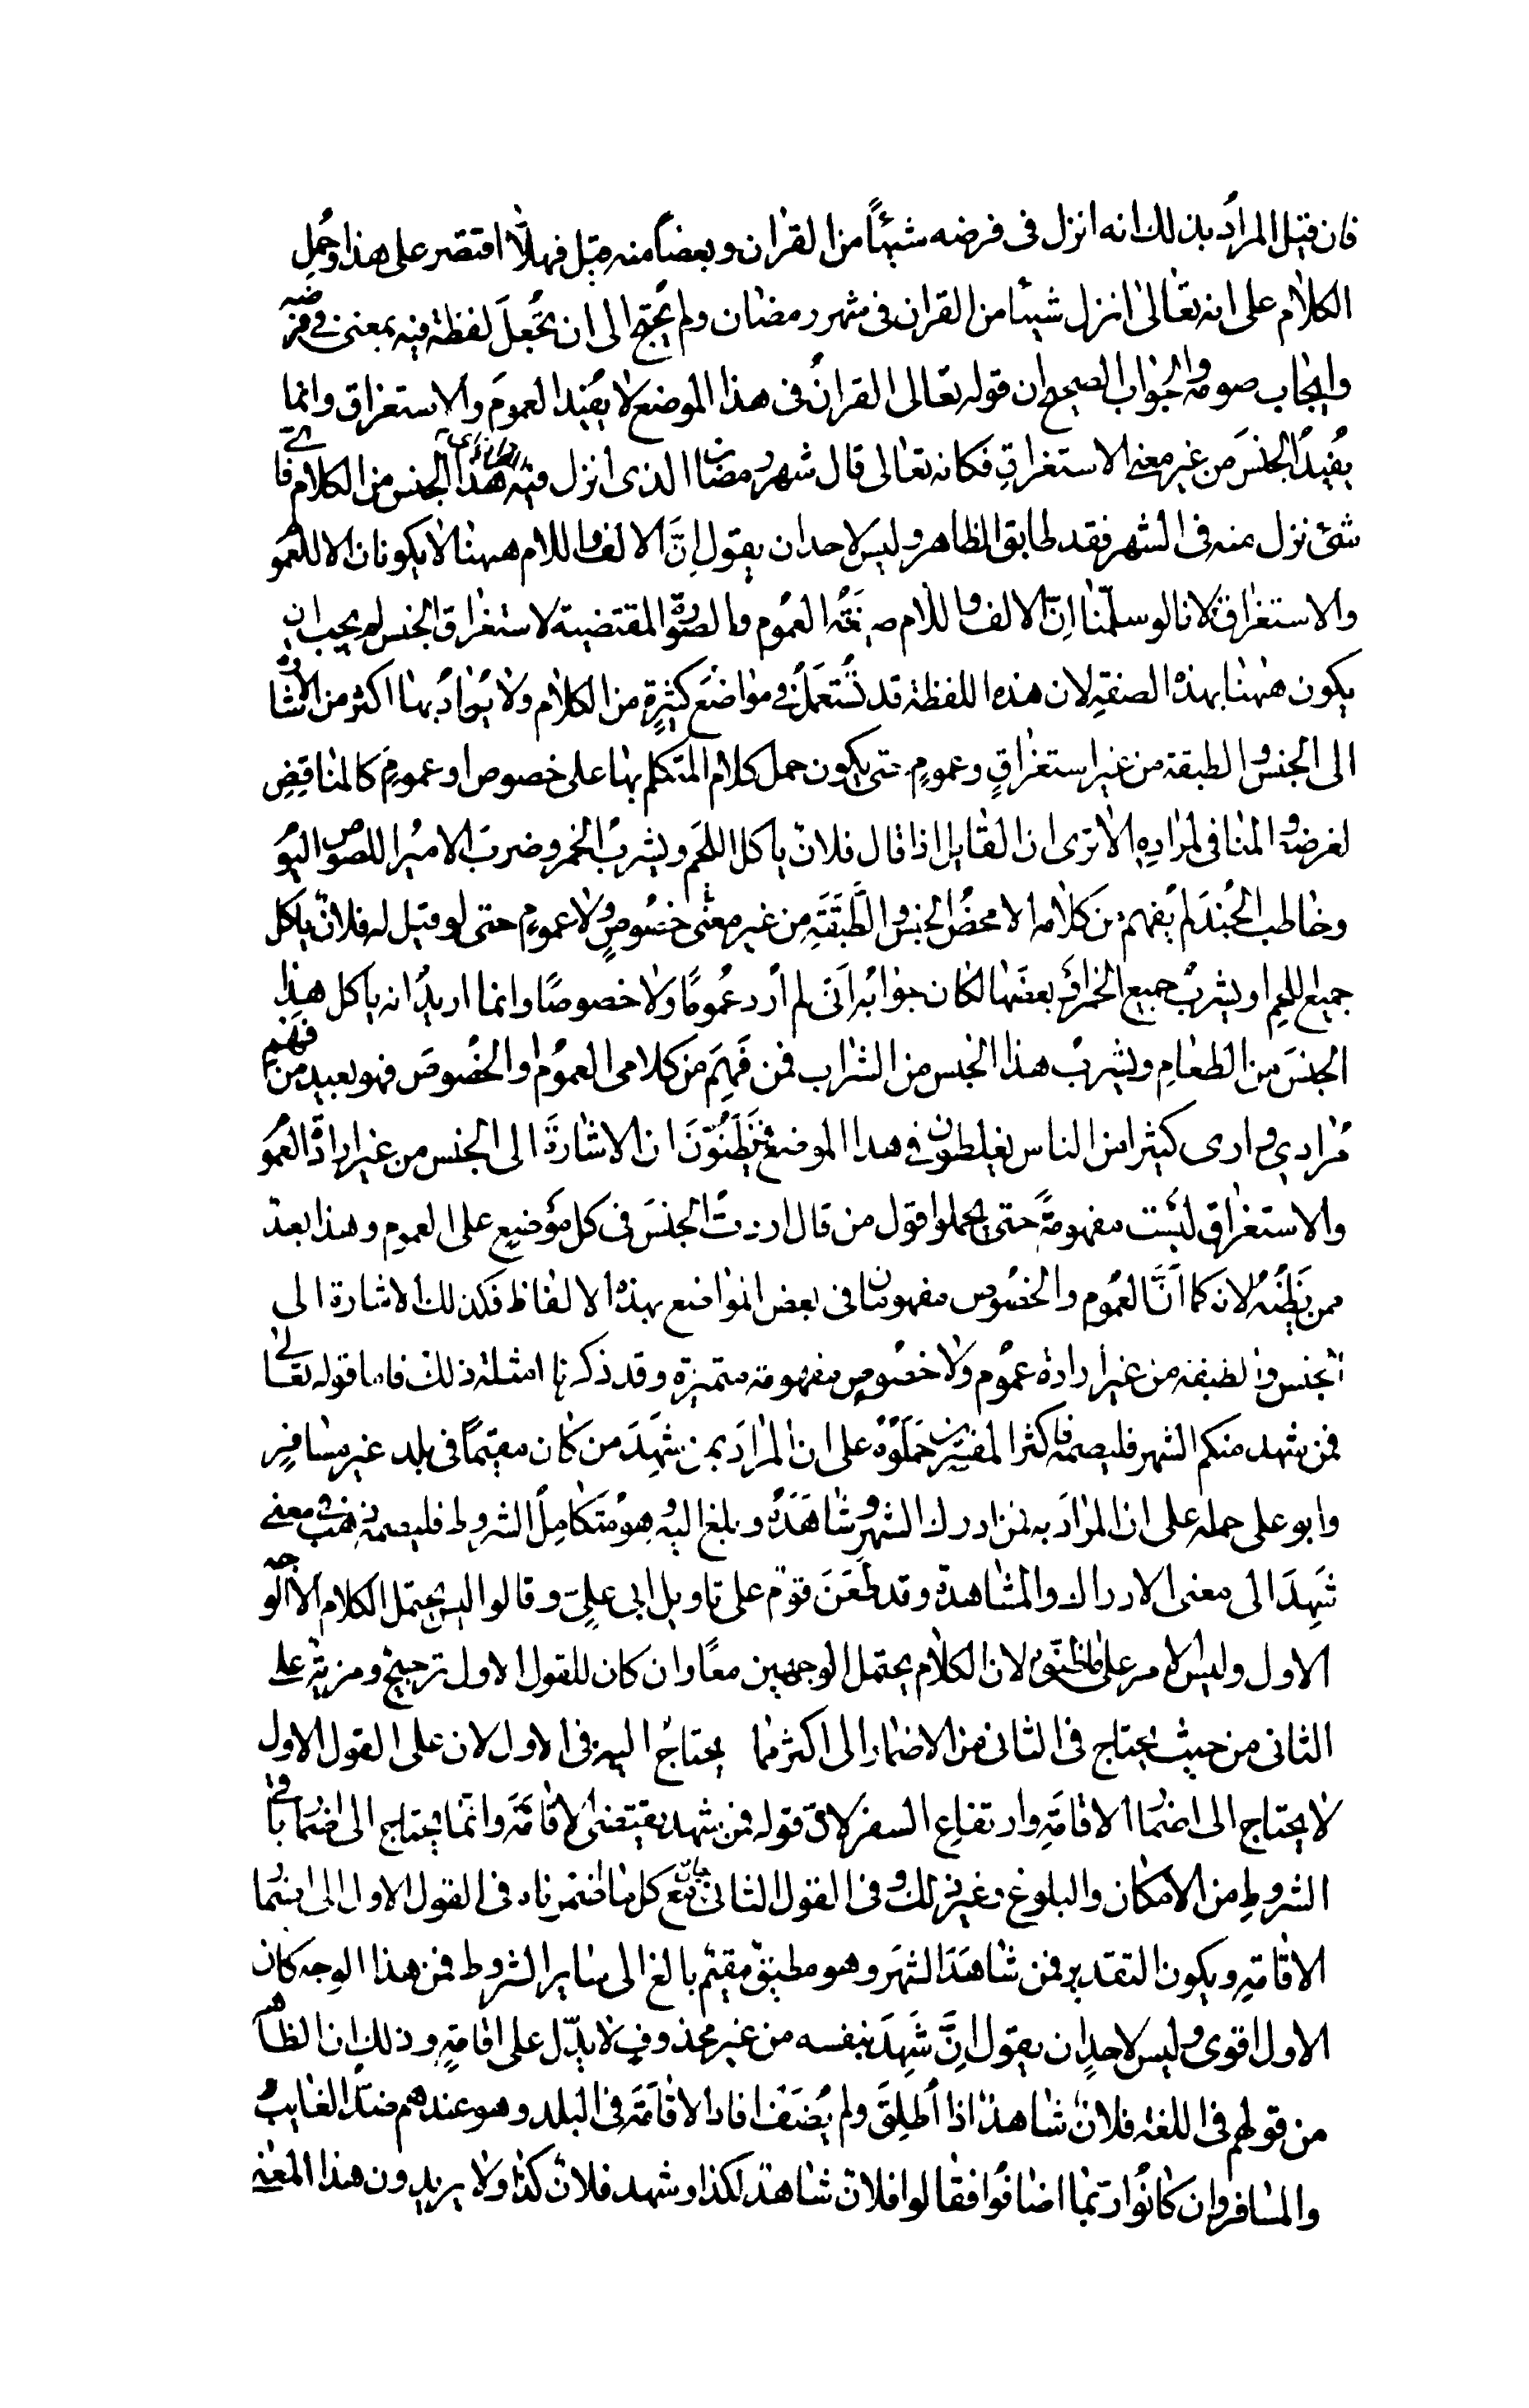 فان قيل المرادُ بذلك انه انزل فى فرضه شيئًا من القران وبعضاً منه قيل فهلاّ اقتصر على هذا وحُمِل
الكلام على انه تعالى انزل شيئا من القران فى شهر رمضان ولم يُحتج الى ان يُجعلَ لفظة فيه بمعنى فى فرضه
وايجاب صومه والجواب الصحيح ان قوله تعالى القرانُ فى هذا الموضع لا يفيد العمومَ والاستغراق وانما
يفيدُ الجنسَ من غير معنى الاستغراقِ فكانه تعالى قال شهر رمضان الذى انزل فيه هذا الجنس من الكلام فاى
شئ نزل منه فى الشهر فقد طابق الظاهر وليس لاحد ان يقول اِنَّ الالف واللام ههنا لا يكونان الا للعموم
والاستغراق لانا لو سلّمنا اِنّ الالف واللام صيغةُ العُموم والصورة المقتضية لاستغراق الجنس لم يجب ان
يكون ههنا بهذه الصفةِ لان هذه اللفظة قد تُستعمَلُ فى مواضعَ كثيرةٍ من الكلام ولا يُرادُ بها اكثر من الاشارة
الى الجنس والطبقة من غير استغراقٍ وعمومٍ حتى يكون حمل كلام المتكلم بها على خصوص او عمومٍ كالمناقِضِ
لغرضه والمنافى لمرادِهِ الا ترى ان القايل اذا قال فلانٌ ياكل اللحَم ويشربُ الخمر وضربَ الاميُر اللصوص اليوم
وخاطب الجُندَ لم يُفهم من كلامه الا محضُ الجنس والطَّبَقَةِ مِن غير معنى خصُوصٍ ولا عمومٍ حتى لو قيل له فلانٌ ياكل
جميع اللحِم او يشربُ جميع الخمر او بعضَها لكان جوابُه اَنىّ لم اُرد عُمومًا ولا خصوصًا وانما اريدُ انه ياكل هذا
الجنسَ من الطعامِ ويشربُ هذا الجنس من الشراب فمن فَهِمَ من كلامى العمومُ او الخصُوصَ فهو بعيد من فهم
مُرادي وارى كثيرا من الناس يغلطون فى هذا الموضع فيَظُنُّونَ ان الاشارَةَ الى الجنس من غير ارادَةِ العُموم
والاستغراق ليسَت مفهومةً حتى يحملوا قول من قال اردتُ الجنسَ فى كل مَوضِعٍ على العموِم وهذا بعدٌ
ممن يَظُنّهُ لانه كما اَنَّ العُموم والخصُوص مفهومان فى بعض المواضع بهذه الالفاظ فكذلك الاشارة الى
الجنس والطبقة من غير ارادة عمُوم ولا خصُوصٍ مفهومة متميزة وقد ذكرنا امثلة ذلك فاما قوله تعالى
فمن شهد منكم الشهر فليصمه فاكثر المفسرين حَمَلَوُهُ على ان المرادَ بمن شَهِدَ من كان مقيمًا فى بلد غير مسافرٍ
وابو على حمله على ان المرادَ به فمن ادرك الشهر وشَاهَدَهُ وبلغ اليه وهو مُتَكامِلُ الشروط فليصمه ذهب معنى
شَهِدَ الى معنى الادراك والمشاهدة وقد طعَنَ قومٌ على تاويل ابى علىٍّ وقالوا ليس يحتمل الكلام الاّ الوجه
الاول وليس الامر على ما ظنّوه لان الكلام يحتمل الوجهين معًا وان كان للقول الاول ترجيحٌ ومزية على
الثانى من حيث يُحتاج فى الثانى من الاضمار الى اكثر مما يحتاجُ اليه فى الاول لان على القول الاول
لا يحتاج الى اضمار الاقامَةِ وارتفاعِ السفر لانّ قوله فمن شهد يقتضى الاقامَةَ وانَّما يحتاج الى اضمار باقى
الشروطِ من الامكان والبلوغ وغير ذلك وفى القول الثانى يحتاج مع كل ما اضمرناه فى القول الاول الى اضمار
الاقامةِ ويكون التقدير فمن شاهَدَ الشهَر وهو مطيقٌ مقيمٌ بالغ الى سايرِ الشروط فمن هذا الوجه كان
الاول اقوى وليس لاحدٍ ان يقول اِنَّ شَهِدَ بنفسه من غير محذوفٍ لا يدّل على اقامةٍ وذلك ان الظاهر
من قولهم فى اللغة فلانٌ شاهدٌ اذا اُطلِقَ ولم يُضَفْ افاد الاقامَةَ فى البلد وهو عندهم ضدّ الغايبُ
والمسافر وان كانُوا ربّما اضافُوا فقالوا فلانٌ شاهدٌ لكذا وشهد فلانٌ كذا ولا يريدون هذا المعنى